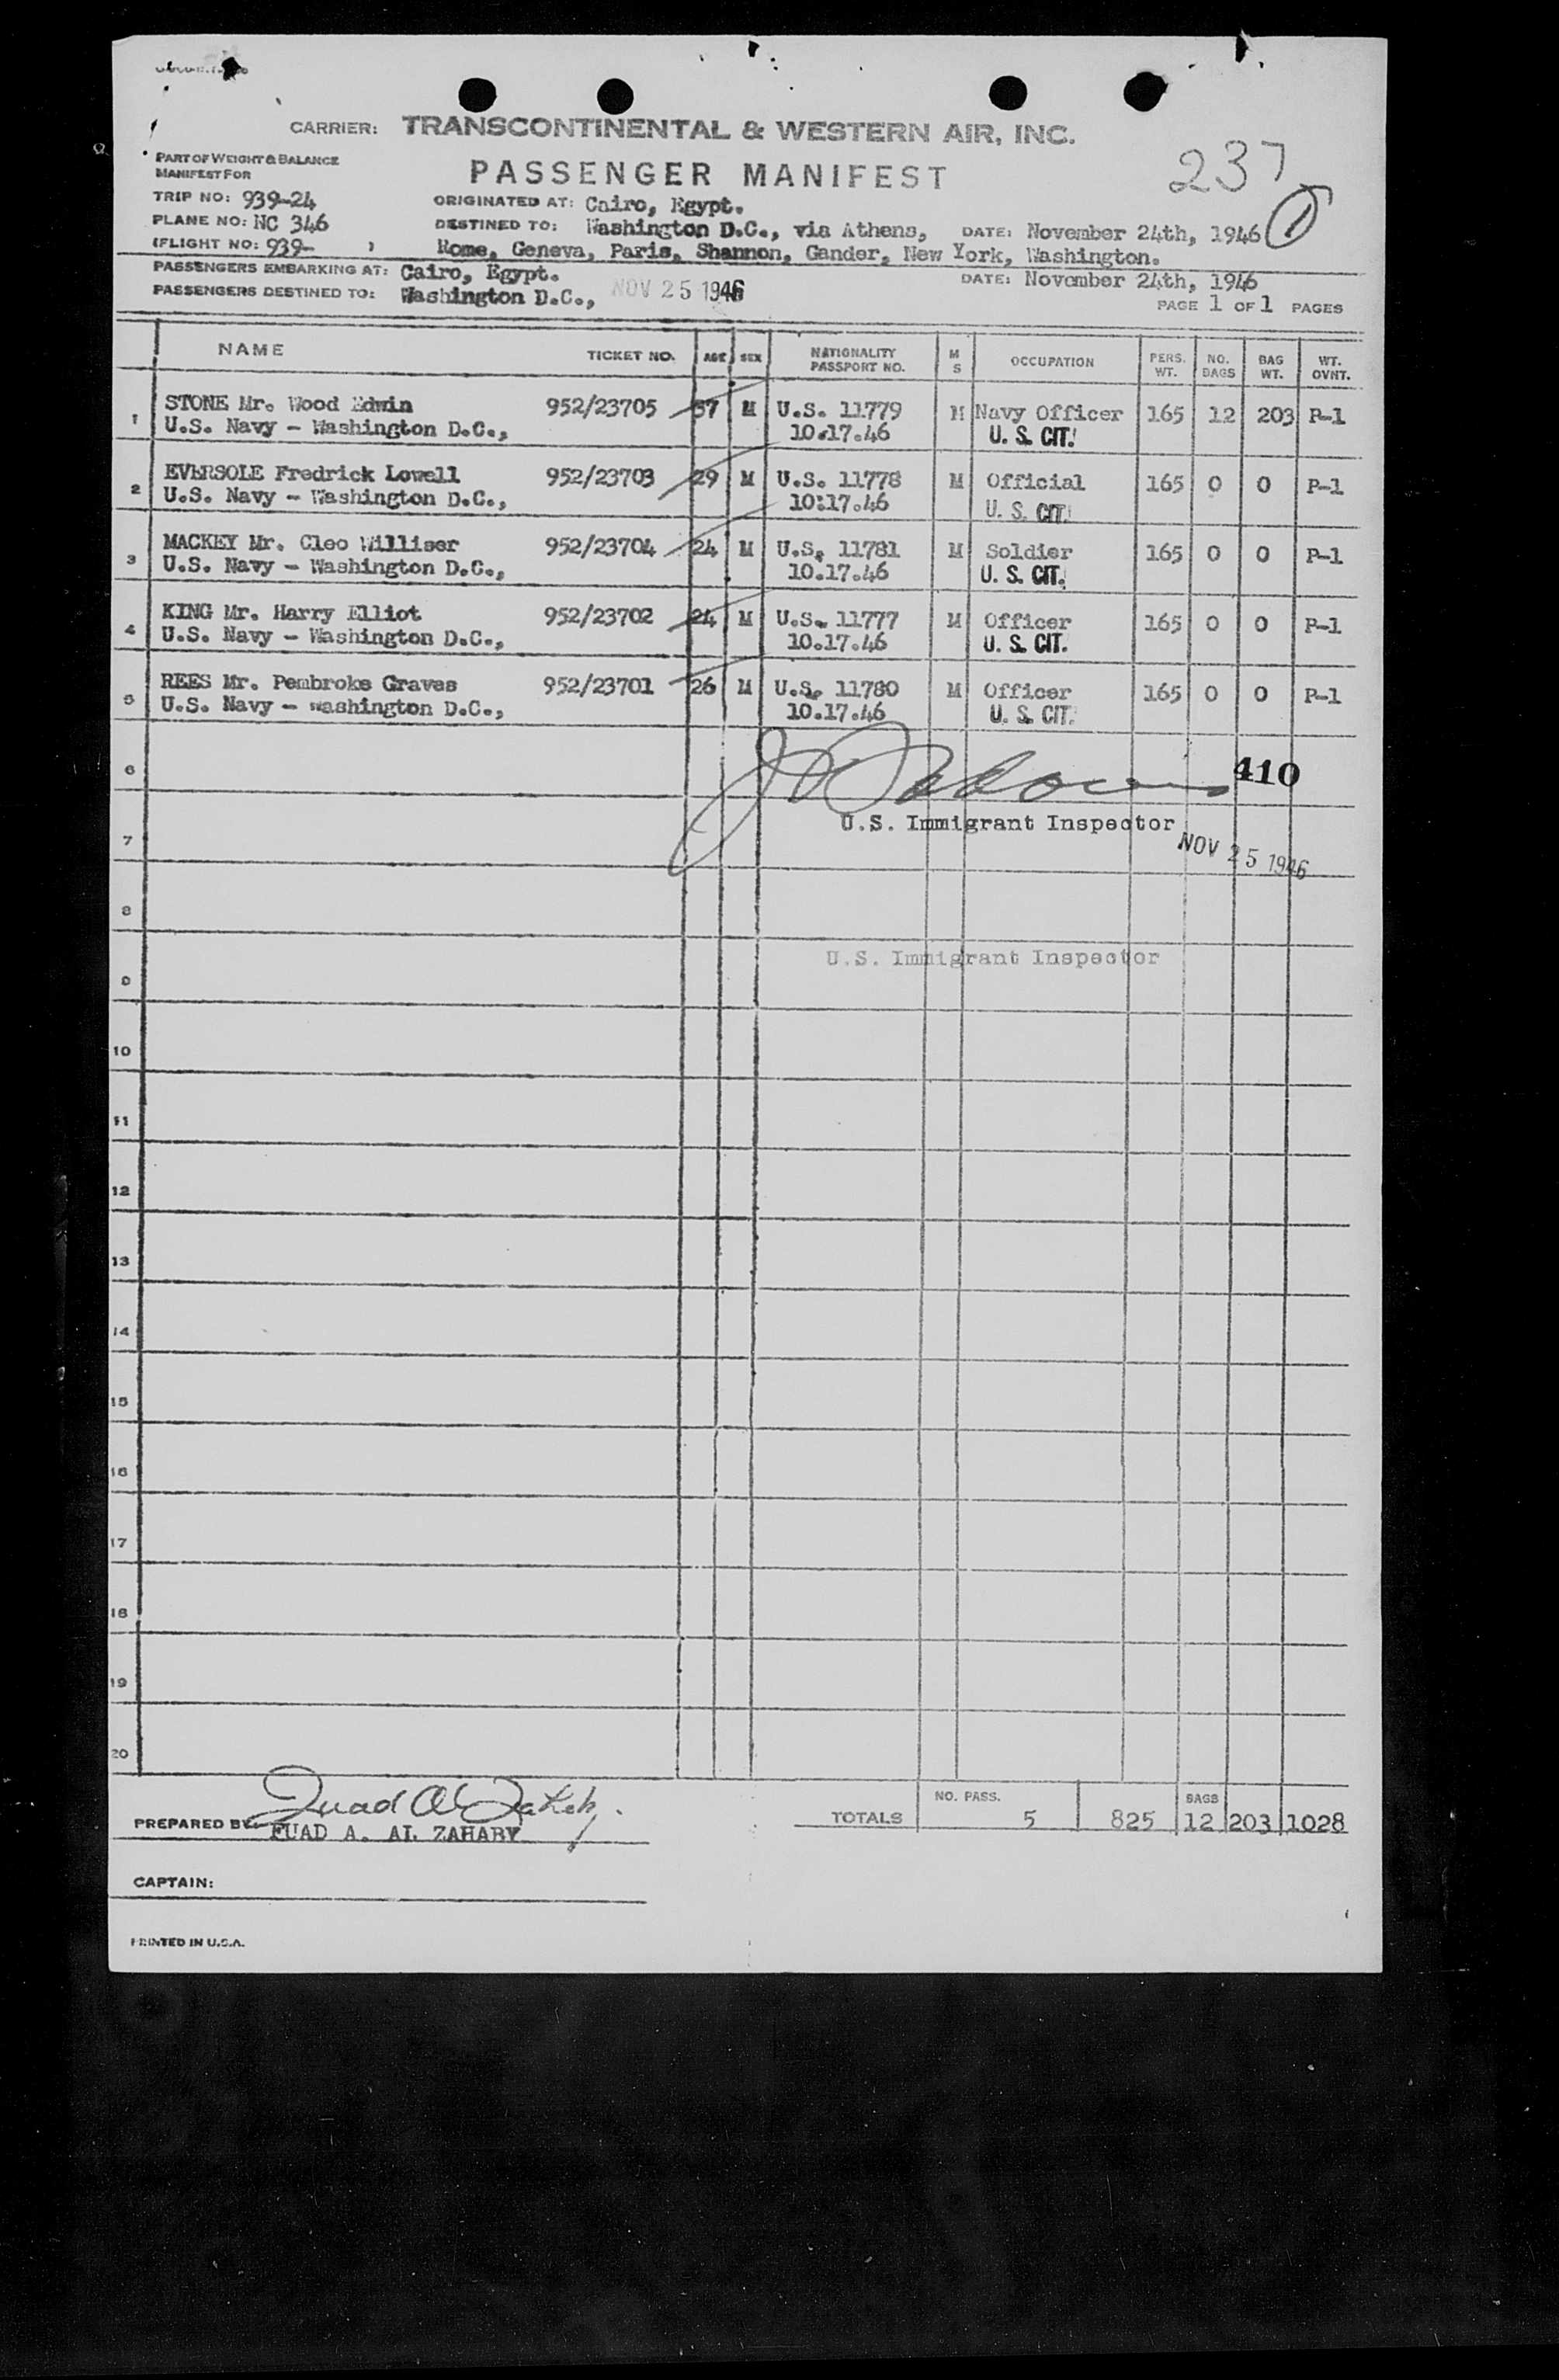 CARRIER: TRANSCONTINENTAL & WESTERN AIR, INC.
237
PART OF WEIGHT & BALANCE
MANIFEST FOR
PASSENGER MANIFEST
TRIP NO: 939-24 ORIGINATED AT: Cairo, Egypt.
PLANE NO: NC 346 DESTINED TO: Washington D.C., via Athens, DATE: November 24th, 1946 1
(FLIGHT NO: 939- ) Rome, Geneva, Paris, Shannon, Gander, New York, Washington.
PASSENGERS EMBARKING AT: Cairo, Egypt. DATE: November 24th, 1946
PASSENGERS DESTINED TO: Washington D.C., NOV 25 1946
PAGE 1 OF 1 PAGES
NAME TICKET NO. AGE SEX NATIONALITY PASSPORT NO. M S OCCUPATION PERS. WT. NO. BAGS BAG WT. WT. OVNT.
1 STONE Mr. Wood Edwin 952/23705 37 M U.S. 11779 M Navy Officer 165 12 203 P-1
U.S. Navy - Washington D.C., 10.17.46 U. S. CIT.
2 EVERSOLE Fredrick Lowell 952/23703 29 M U.S. 11778 M Official 165 0 0 P-1
U.S. Navy - Washington D.C., 10:17.46 U. S. CIT.
3 MACKEY Mr. Cleo Williser 952/23704 24 M U.S. 11781 M Soldier 165 0 0 P-1
U.S. Navy - Washington D.C., 10.17.46 U. S. CIT.
4 KING Mr. Harry Elliot 952/23702 24 M U.S. 11777 M Officer 165 0 0 P-1
U.S. Navy - Washington D.C., 10.17.46 U. S. CIT.
5 REES Mr. Pembroke Graves 952/23701 26 M U.S. 11780 M Officer 165 0 0 P-1
U.S. Navy - Washington D.C., 10.17.46 U. S. CIT.
6 410
U.S. Immigrant Inspector
7 NOV 25 1946
8
U.S. Immigrant Inspector
9
10
11
12
13
14
15
16
17
18
19
20
NO. PASS. BAGS
TOTALS 5 825 12 203 1028
PREPARED BY: FUAD A. AL ZAHABY
CAPTAIN:
PRINTED IN U.S.A.